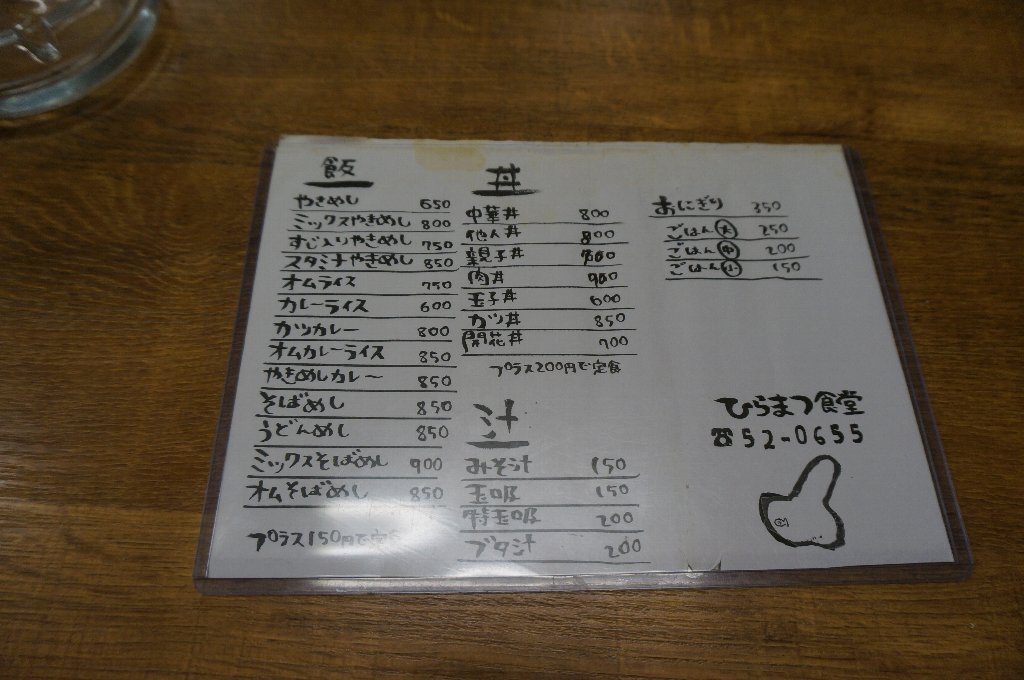 飯
やきめし 650
ミックスやきめし 800
すじ入りやきめし 750
スタミナやきめし 850
オムライス 750
カレーライス 600
カツカレー 800
オムカレーライス 850
やきめしカレー 850
そばめし 850
うどんめし 850
ミックスそばめし 900
オムそばめし 850
プラス150円で定
丼
中華丼 800
他人丼 800
親子丼
肉丼
玉子丼 600
カツ丼 850
開花丼 700
プラス200円で定食
汁
みそ汁 150
玉吸 150
特玉吸 200
ブタ汁 200
おにぎり 350
ごはん大 250
ごはん中 200
ごはん小 150
ひらまつ食堂
☎52-0655